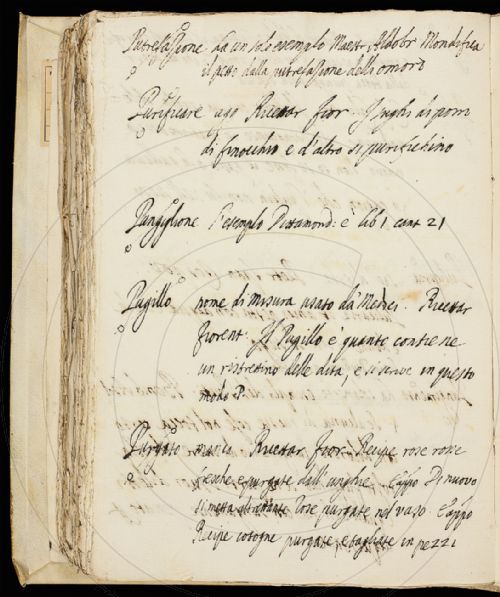 Putrefazione da un solo esemplo Maestr. Aldobr
il petto dalla putrefazione delli omori
Purificare uso Ricettar Fior I sughi di pomi
di finocchio e d'altro si purifichino
Pungiglione l'esemplo Dittamond. è lib 1 cant 21
Pugillo nome di misura usato da Medici. Ricettar
Fiorent. Il Pugillo è quanto contiene
un ristrettino delle dita, e si scrive in questo
modo P.
Purgato manca. Ricettar Fior. Recipe rose rosse
fresche e purgate dall'unghie. E appo Di nuovo
si metta altrettante rose purgate nel vaso. E appo
Recipe cotogne purgate, e tagliate in pezzi